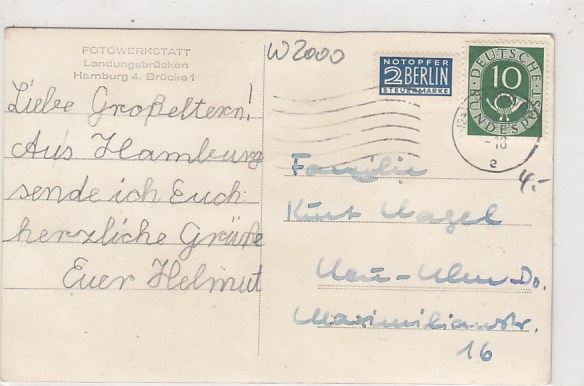 FOTOWERKSTATT
Landungsbrücken
Hamburg 4, Brücke 1
Liebe Großeltern!
Aus Hamburg
sende ich Euch
herzliche Grüße
Euer Helmut
W 2000
NOTOPFER
2 BERLIN
STEUERMARKE
10
DEUTSCHE
BUNDESPOST
-18
e
4.-
Familie
Kurt Nagel
Neu-Ulm Do.
Maximilianstr.
16